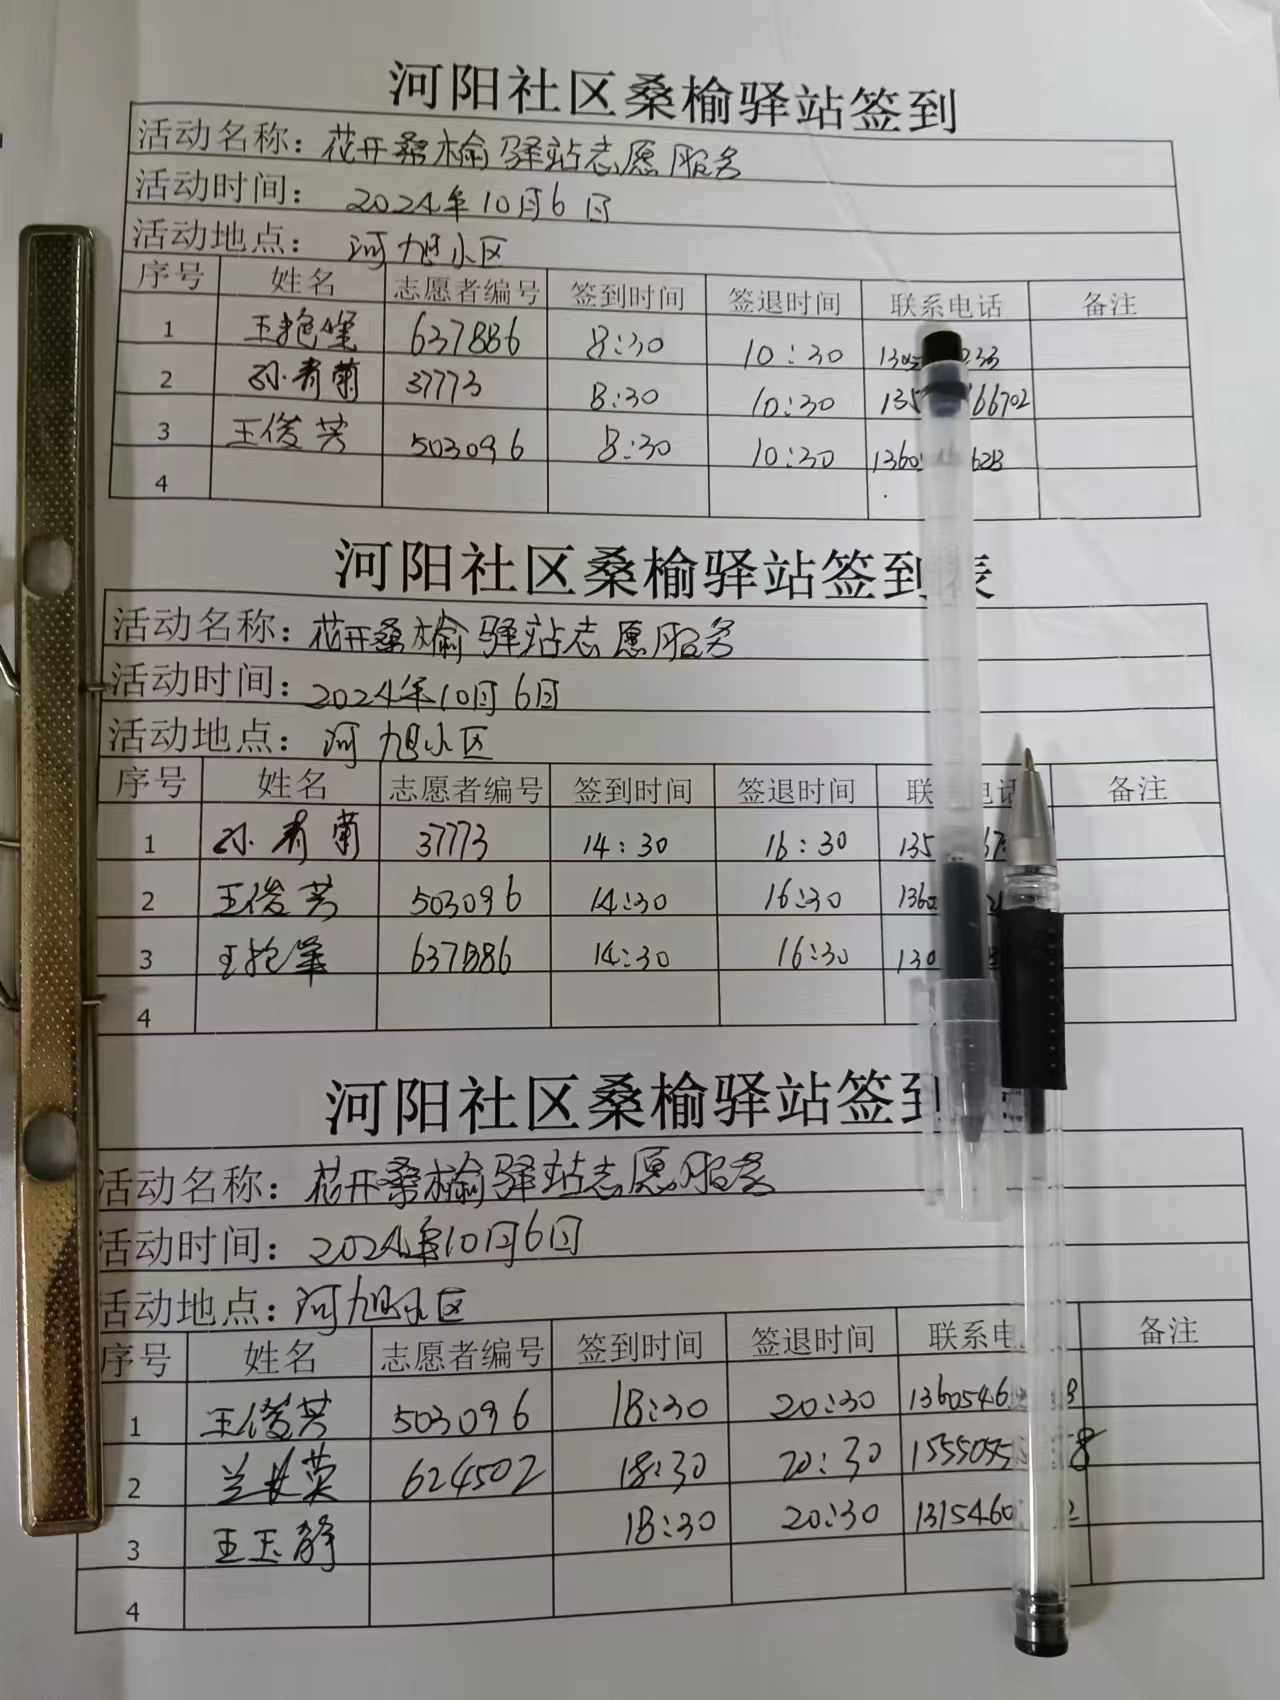 河阳社区桑榆驿站签到
活动名称：花开桑榆驿站志愿服务
活动时间：2024年10月6日
活动地点：河旭小区
序号 姓名 志愿者编号 签到时间 签退时间 联系电话 备注
1 637886 8:30 10:30
2 孙青菊 37773 8:30 10:30 66702
3 王俊芳 503096 8:30 10:30 1360 628
4
河阳社区桑榆驿站签到表
活动名称：花开桑榆驿站志愿服务
活动时间：2024年10月6日
活动地点：河旭小区
序号 姓名 志愿者编号 签到时间 签退时间 联 电话 备注
1 孙青菊 37773 14:30 16:30 135
2 王俊芳 503096 14:30 16:30 1360
3 637886 14:30 16:30 130
4
河阳社区桑榆驿站签到
活动名称：花开桑榆驿站志愿服务
活动时间：2024年10月6日
活动地点：河旭小区
序号 姓名 志愿者编号 签到时间 签退时间 联系电 备注
1 王俊芳 503096 18:30 20:30 1360546
2 兰 英 624502 18:30 20:30 1555055 8
3 王玉静 18:30 20:30 1315460 2
4